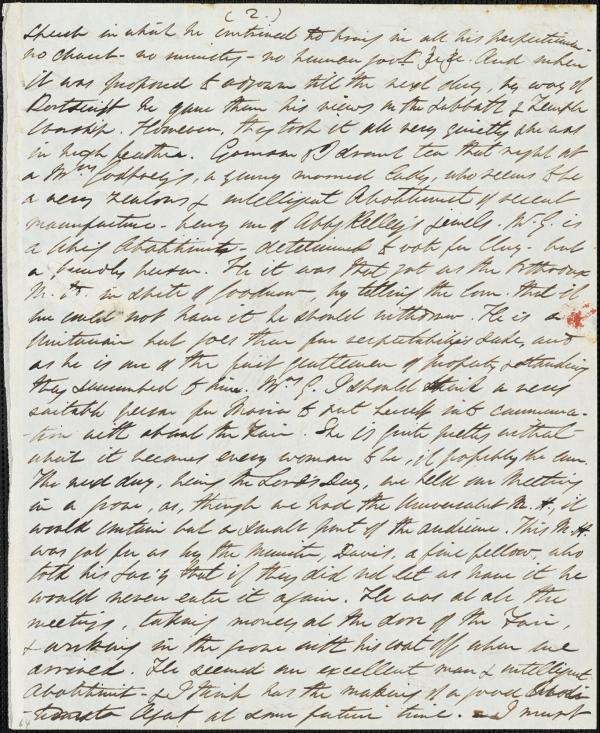 (2.)
speech in which he contrived to bring in all his perfections -
no church - no ministry - no human gov't &c &c. And when
it was proposed to adjourn till the next day, by way of
Postscript he gave them his views on the Sabbath & Temple
worship. However, they took it all very quietly & he was
in high feather. Garrison & I drank tea that night at
a Mrs Godfrey's, a young married lady, who seems to be
a very zealous & intelligent Abolitionist of recent
manufacture - being one of Abby Kelley's jewels. Mr G. is
a Whig Abolitionist - determined to vote for Clay - but
a friendly person. He it was that got us the Orthodox
M. H. in spite of Goodnow, by telling the Com. that if
we could not have it he should withdraw. He is a
Unitarian but goes there for respectability's sake, and
as he is one of the first gentlemen of property & standing
they succumbed to him. Mrs G. I should think a very
suitable person for Maria to put herself into communica-
tion with about the Fair. She is quite pretty withal -
what it becomes every woman to be, if possibly she can.
The next day, being the Lord's Day, we held our Meeting
in a grove, as, though we had the Universalist M. H., it
would contain but a small part of the audience. This M. H.
was got for us by the Minister, Davis, a fine fellow, who
told his Soc'y that if they did not let us have it he
would never enter it again. He was at all the
meetings, taking money at the door of the Fair,
& working in the grove with his coat off when we
arrived. He seemed an excellent man & intelligent
Abolitionist - & I think has the making of a good
Agent at some future time. - I must
64